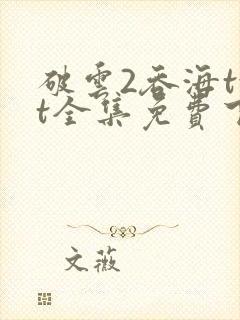 破雲2吞海t
t全集免費
文薇